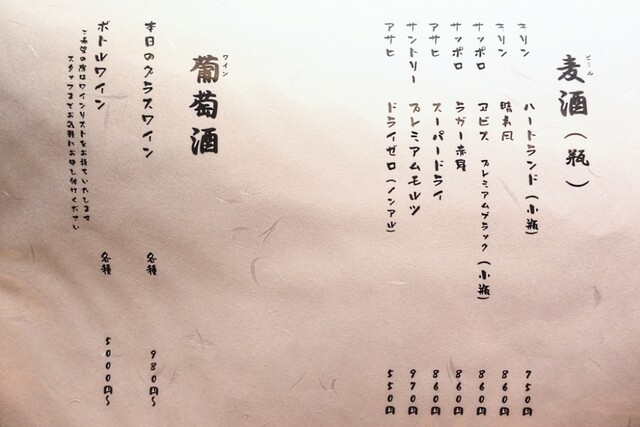 麦酒(瓶)
ビール
キリン ハートランド(小瓶) 750円
キリン 晴れ風 860円
サッポロ ヱビス プレミアムブラック(小瓶) 860円
サッポロ ラガー赤星 860円
アサヒ スーパードライ 860円
サントリー プレミアムモルツ 970円
アサヒ ドライゼロ(ノンアル) 550円
葡萄酒
ワイン
本日のグラスワイン 各種 980円〜
ボトルワイン 各種 5000円〜
ご希望の際はワインリストをお持ちいたします
スタッフまでお気軽にお申し付けください